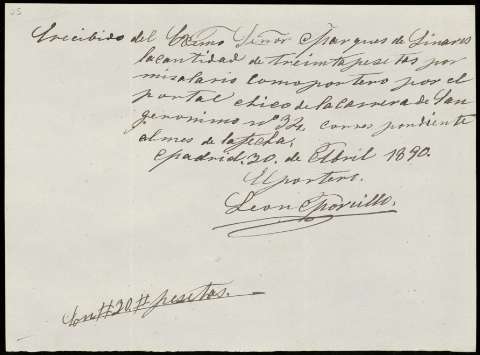 Erecibido del Exsmo Señor Marques de Linares
la cantidad de treimta pesetas por
mi salario como portero por el
portal chico de la Carrera de San
geronimo nº 34, corres pondiente
al mes de la fecha.
Madrid. 30. de Abril 1890.
El portero.
Leon
Son # 30 # pesetas.